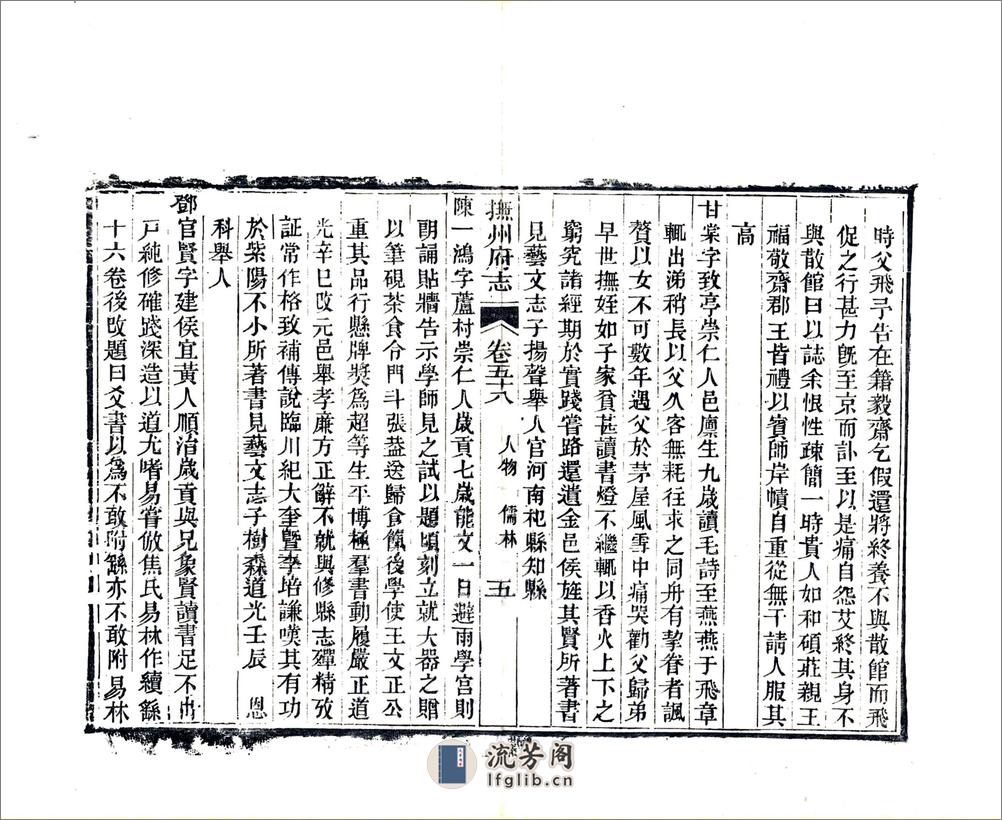 時父飛予告在籍毅齋乞假還將終養不與散館而飛
促之行甚力既至京而訃至以是痛自怨艾終其身不
與散館曰以誌余恨性疎簡一時貴人如和碩莊親王
福敬齋郡王皆禮以賓師岸幘自重從無干請人服其
高
甘棠字致亭崇仁人邑廪生九歲讀毛詩至燕燕于飛章
輒出涕稍長以父久客無耗往求之同舟有挈眷者諷
贅以女不可數年遇父於茅屋風雪中痛哭勸父歸弟
早世撫姪如子家貧甚讀書燈不繼輒以香火上下之
窮究諸經期於實踐嘗路還遺金邑侯旌其賢所著書
見藝文志子揚聲舉人官河南祀縣知縣
撫州府志 卷五十六 人物 儒林 五
陳一鴻字蘆村崇仁人歲貢七歲能文一日避雨學宮則
朗誦貼牆告示學師見之試以題頃刻立就大器之贈
以筆硯茶食令門斗張葢送歸食餼後學使王文正公
重其品行懸牌獎為超等生平博極羣書動履嚴正道
光辛巳改元邑舉孝廉方正辭不就與修縣志殫精攷
証常作格致補傳說臨川紀大奎暨李培謙嘆其有功
於紫陽不小所著書見藝文志子樹森道光壬辰 恩
科舉人
鄧官賢字建侯宜黃人順治歲貢與兄象賢讀書足不出
戸純修確踐深造以道尤嗜易嘗倣焦氏易林作續繇
十六卷後改題曰爻書以為不敢附繇亦不敢附易林
流芳阁
lfglib.cn